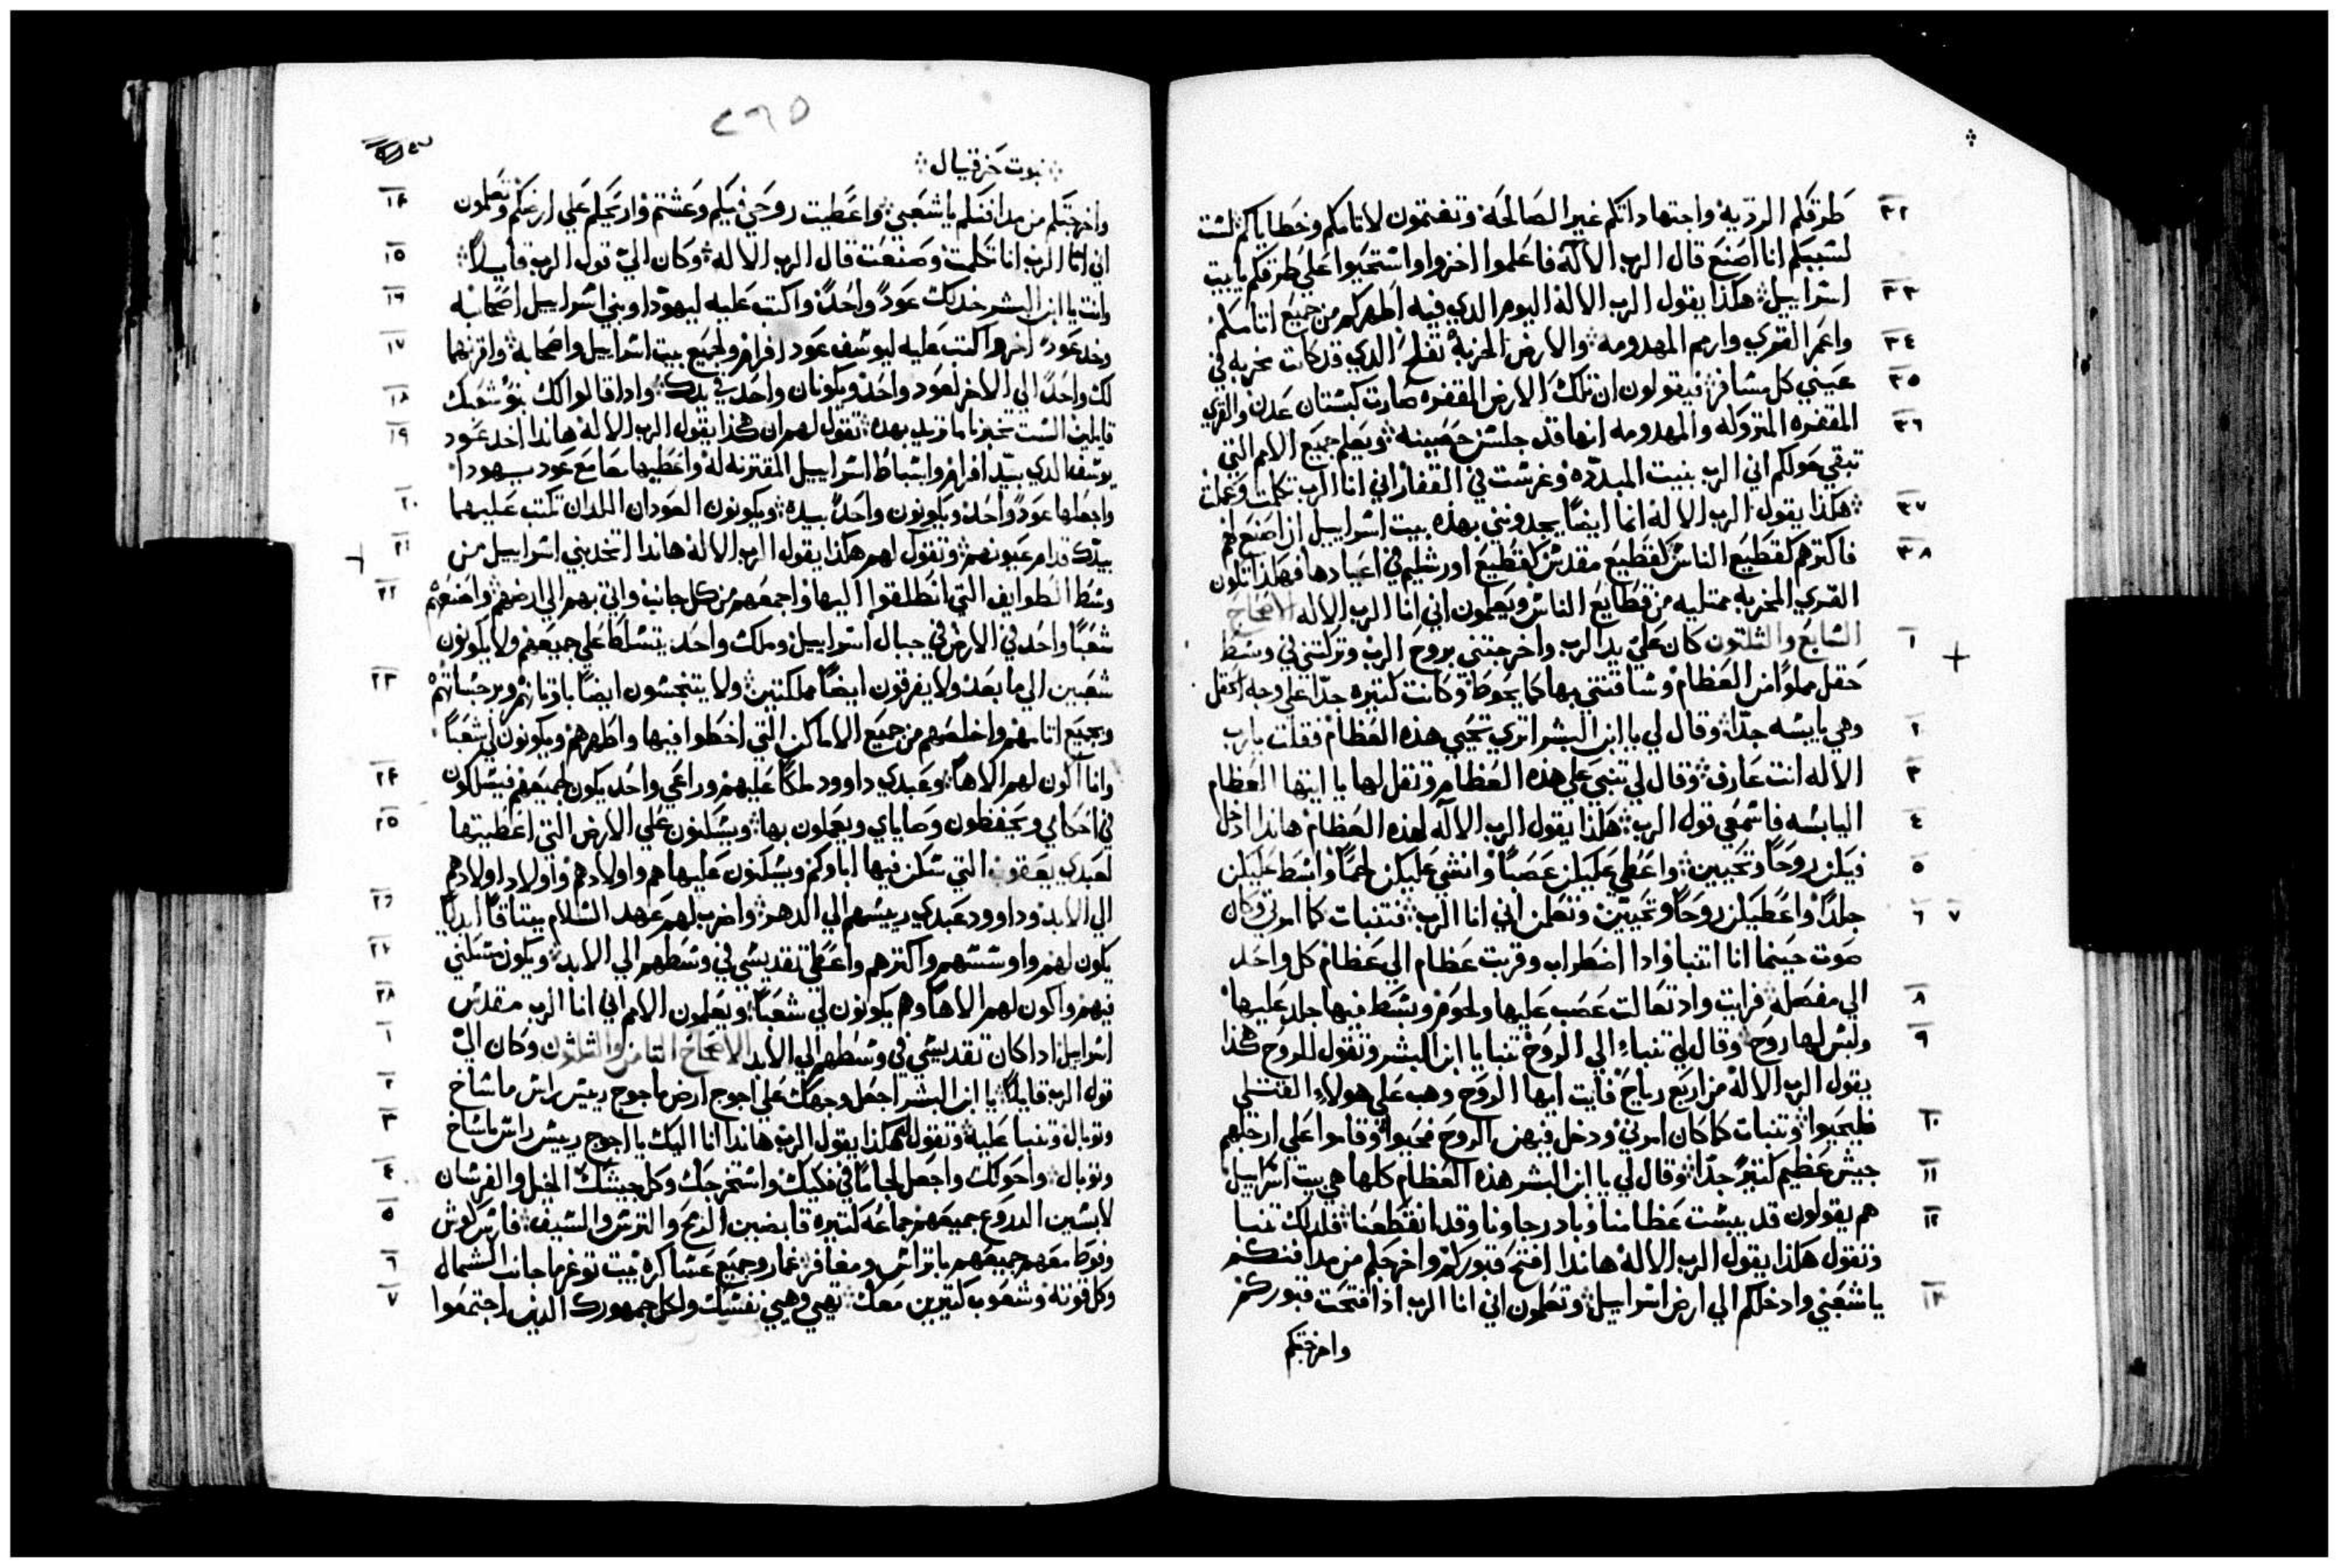 ٣٢ طرقكم الرديه واجتهاداتكم غير الصالحة وتغتمون لاثامكم وخطاياكم لست
لسببكم انا اصنع قال الرب الالآه فاعلموا اخزوا واستحيوا علي طرقكم يا بيت
٣٣ اسراييل هكذا يقول الرب الاله اليوم الدي فيه اطهركم من جميع اتامكم
٣٤ واعمر القري وارم المهدومه والارض الخربة تفلح الدي قد كانت مخربه في
٣٥ عيني كل مسافر فيقولون ان تلك الارض المقفره صارت كبستان عدن والقري
٣٦ المقفره المتروكه والمهدومه انها قد جلست حصينه ويعلم جميع الامم التي
تبقي حولكم اني الرب بنيت المبدده وغرست في القفار اني انا الرب تكلمت وعملت
٣٧ هكذا يقول الرب الاله انما ايضا يجدونني بهذه بيت اسراييل ان اصنع لهم
٣٨ فاكترهم كقطيع الناس كقطيع مقدس كقطيع اورشليم في اعيادها فهكذا تكون
القري المخربه ممتليه من قطايع الناس ويعلمون اني انا الرب الاله الاصحاح
١ السابع والثلثون كان علي يد الرب واخرجتني بروح الرب وتركتني في وسط
حقل مملوا من العظام وساقتني بها كما يحوط وكانت كتيره جدا علي وجه الحقل
٢ وهي يابسه جدا وقال لي يا ابن البشر اتري تحيي هذه العظام فقلت يا رب
٣ الاله انت عارف وقال لي تنبي علي هذه العظام وتقل لها يا ايتها العظام
٤ اليابسه فاسمعي قول الرب هكذا يقول الرب الالآه لهذه العظام هاندا ادخل
٥ فيكن روحا وتحيين واعطي عليكن عصبا وانشي عليكن لحما وابسط عليكن
٦ ٧ جلدا واعطيكن روحا وتحيين وتعلمن اني انا الرب فتنبات كما امرني وكان
صوت حينما انا اتنبا واذا اضطراب وقربت عظام الي عظام كل واحد
٨ الي مفصله فرايت واد تعالت عصب عليها ولحوم وبسط فيها جلد عليها
٩ وليس لها روح وقال لي تنباء الي الروح تنبا يا ابن البشر وتقول للروح هكذا
يقول الرب الاله من اربع رياح فايت ايها الروح وهب علي هولاء القتلي
١٠ فليحيوا وتنبات كما كان امرني ودخل فيهن الروح فحيوا وقاموا علي ارجلهم
١١ جيش عظيم كتير جدا وقال لي يا ابن البشر هذه العظام كلها هي بيت اسراييل
١٢ هم يقولون قد يبست عظامنا وباد رجاونا وقد انقطعنا فلدلك تنبا
وتقول هكذا يقول الرب الاله هاندا افتح قبوركم واخرجكم من مدافنكم
١٣ يا شعبي وادخلكم الي ارض اسراييل وتعلمون اني انا الرب اذا فتحت قبوركم
واخرجتكم
٢٦٥
نبوت حزقيال
١٤ واخرجتكم من مدافنكم يا شعبي واعطيت روحي فيكم وعشتم واريحكم علي ارضكم وتعلمون
١٥ اني انا الرب انا تكلمت وصنعت قال الرب الاله وكان الي قول الرب قايلا
١٦ وانت يا ابن البشر خد لك عودا واحدا واكتب عليه ليهودا وبني اسراييل اصحابه
١٧ وخد عودا اخر واكتب عليه ليوسف عود افرام ولجميع بيت اسراييل واصحابه واقرنهما
١٨ لك واحدا الي الاخر لعود واحد ويكونان واحد في يدك واذا قالوا لك بنو شعبك
١٩ قايلين الست تخبرنا ما تريد بهده تقول لهم ان هكذا يقول الرب الاله هاندا اخد عود
يوسف الدي بيد افرام واسباط اسراييل المقترنه له واعطيها معا مع عود يهودا
٢٠ واجعلها عودا واحد ويكونون واحدا بيده ويكونون العودان اللدان تكتب عليهما
٢١ بيدك قدام عيونهم وتقول لهم هكذا يقول الرب الاله هاندا اتخد بني اسراييل من
٢٢ وسط الطوايف التي انطلقوا اليها واجمعهم من كل جانب واتي بهم الي ارضهم واصنعهم
شعبا واحد في الارض في جبال اسراييل وملك واحد يتسلط علي جميعهم ولا يكونون
٢٣ شعبين الي ما بعد ولا يفرقون ايضا مملكتين ولا يتنجسون ايضا باوثانهم وبرجساتهم
وبجميع اتامهم واخلصهم من جميع الاماكن التي اخطوا فيها واطهرهم ويكونون لي شعبا
٢٤ وانا اكون لهم الاها وعبدي داوود ملكا عليهم وراعي واحد يكون لجميعهم فيسلكون
٢٥ في احكامي ويحفظون وصاياي ويعملون بها ويسكنون علي الارض التي اعطيتها
لعبدي يعقوب التي سكن فيها اباوكم ويسكنون عليها هم واولادهم واولاد اولادهم
٢٦ الي الابد وداوود عبدي رييسهم الي الدهر واضرب لهم عهد السلام ميتاقا ابديا
٢٧ يكون لهم واوسسهم واكترهم واعطي تقديسي في وسطهم الي الابد ويكون مسكني
٢٨ فيهم واكون لهم الاها وهم يكونون لي شعبا ويعلمون الامم اني انا الرب مقدس
١ اسراييل اذا كان تقديسي في وسطهم الي الابد الاصحاح الثامن والثلثون وكان الي
٢ قول الرب قايلا يا ابن البشر اجعل وجهك علي اجوج ارض ماجوج رييس راس ماشاخ
٣ وتوبال وتنبا عليه وتقول له هكذا يقول الرب هاندا انا اليك يا اجوج رييس راس ماشاخ
٤ وتوبال واحولك واجعل لجاما في فكيك واستخرجك وكل جيشك الخيل والفرسان
٥ لابسين الدروع جميعهم جماعه كتيره قابضين الرمح والترس والسيف فارس كوش
٦ وفوط معهم جميعهم باتراس ومغافر غمار وجميع عساكره بيت توغرما جانب الشمال
٧ وكل قوته وشعوب كتيرين معك تهيي وهيي نفسك ولكل جمهورك الدين اجتمعوا